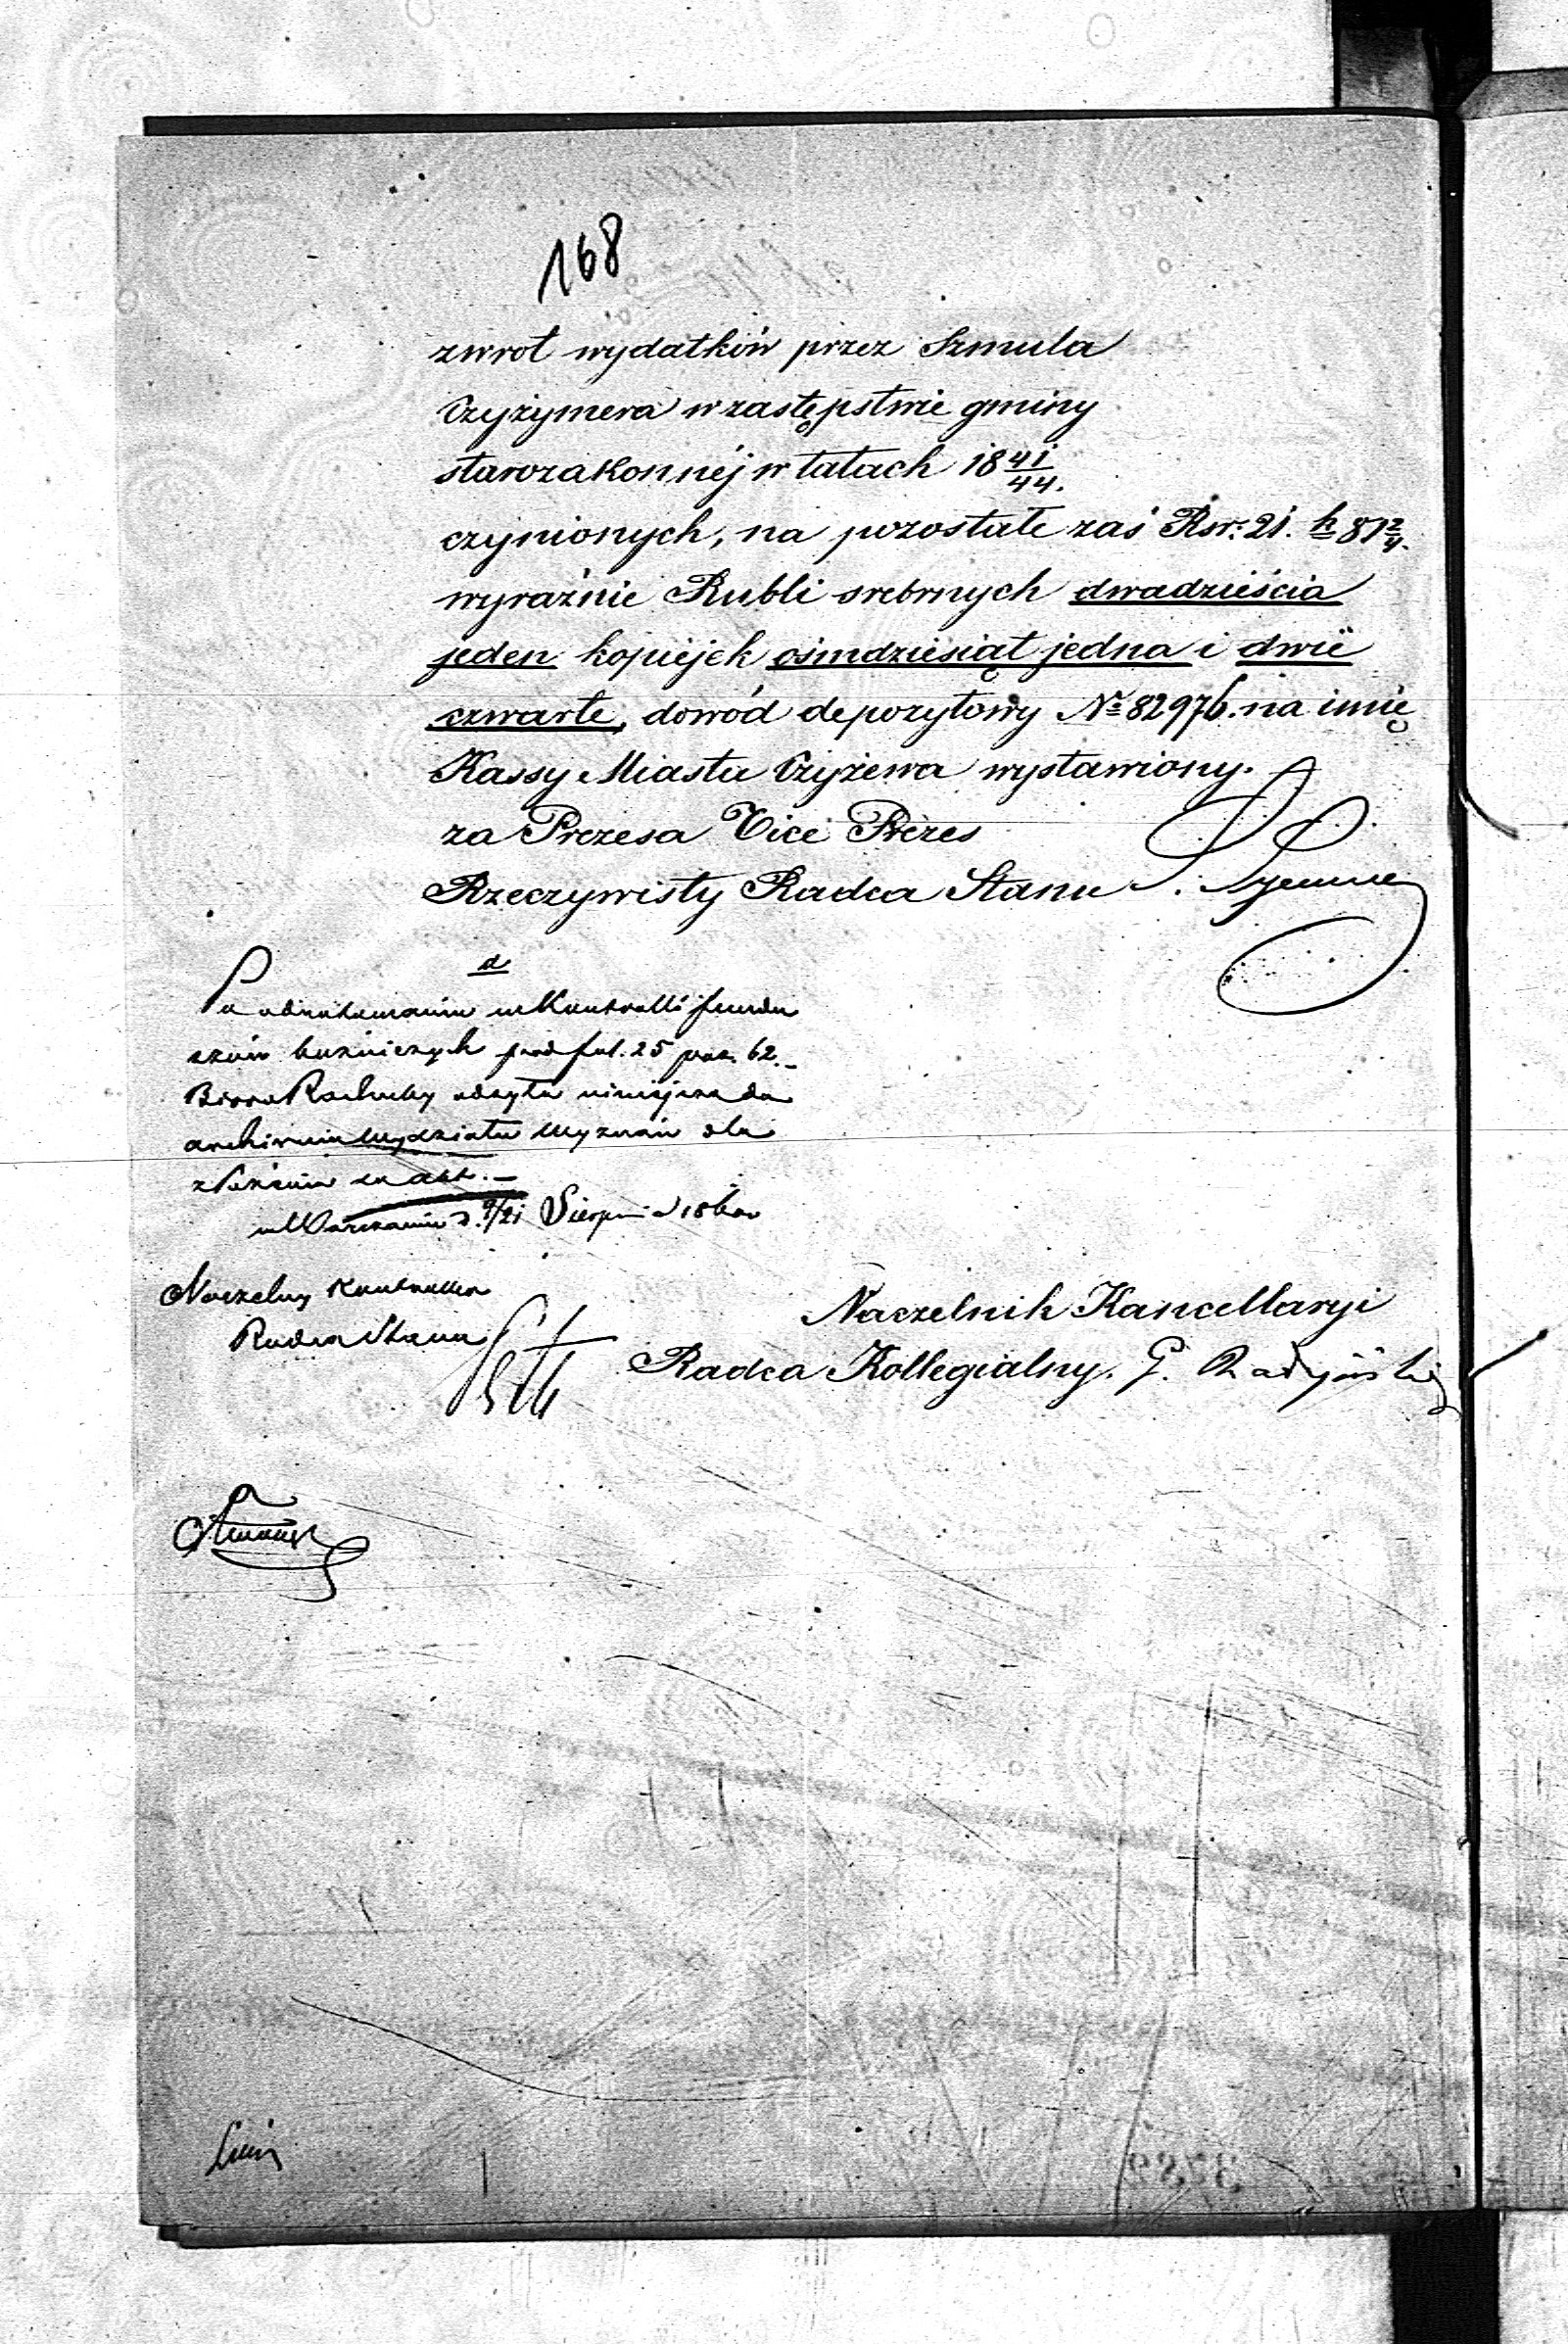 168
zwrot wydatków przez Szmula
Czyżymera w zastępstwie gminy
starozakonnéj w latach 18 41/44.
czynionych, na pozostałe zaś Rsr: 21. k 81 2/4.
wyraźnie Rubli srebrnych dwadzieścia
jeden kopiejek ośmdziesiąt jedna i dwie
czwarte, dowód depozytowy No 82976. na imię
Kassy Miasta Czyżewa wystawiony.
za Prezesa Vice Prezes
Rzeczywisty Radca Stanu
d
Po odnotowaniu w Kontrolli fundu
szów bużniczych pod fol. 25 poz. 62.
Biuro Rachuby odsyła niniejsze do
archiwum Wydziału Wyznań dla
złożenia do akt.
w Warszawie d. 9/21 Sierpnia
Naczelny Kontroller
Radca Stanu
Naczelnik Kancellaryi
Radca Kollegialny. G.